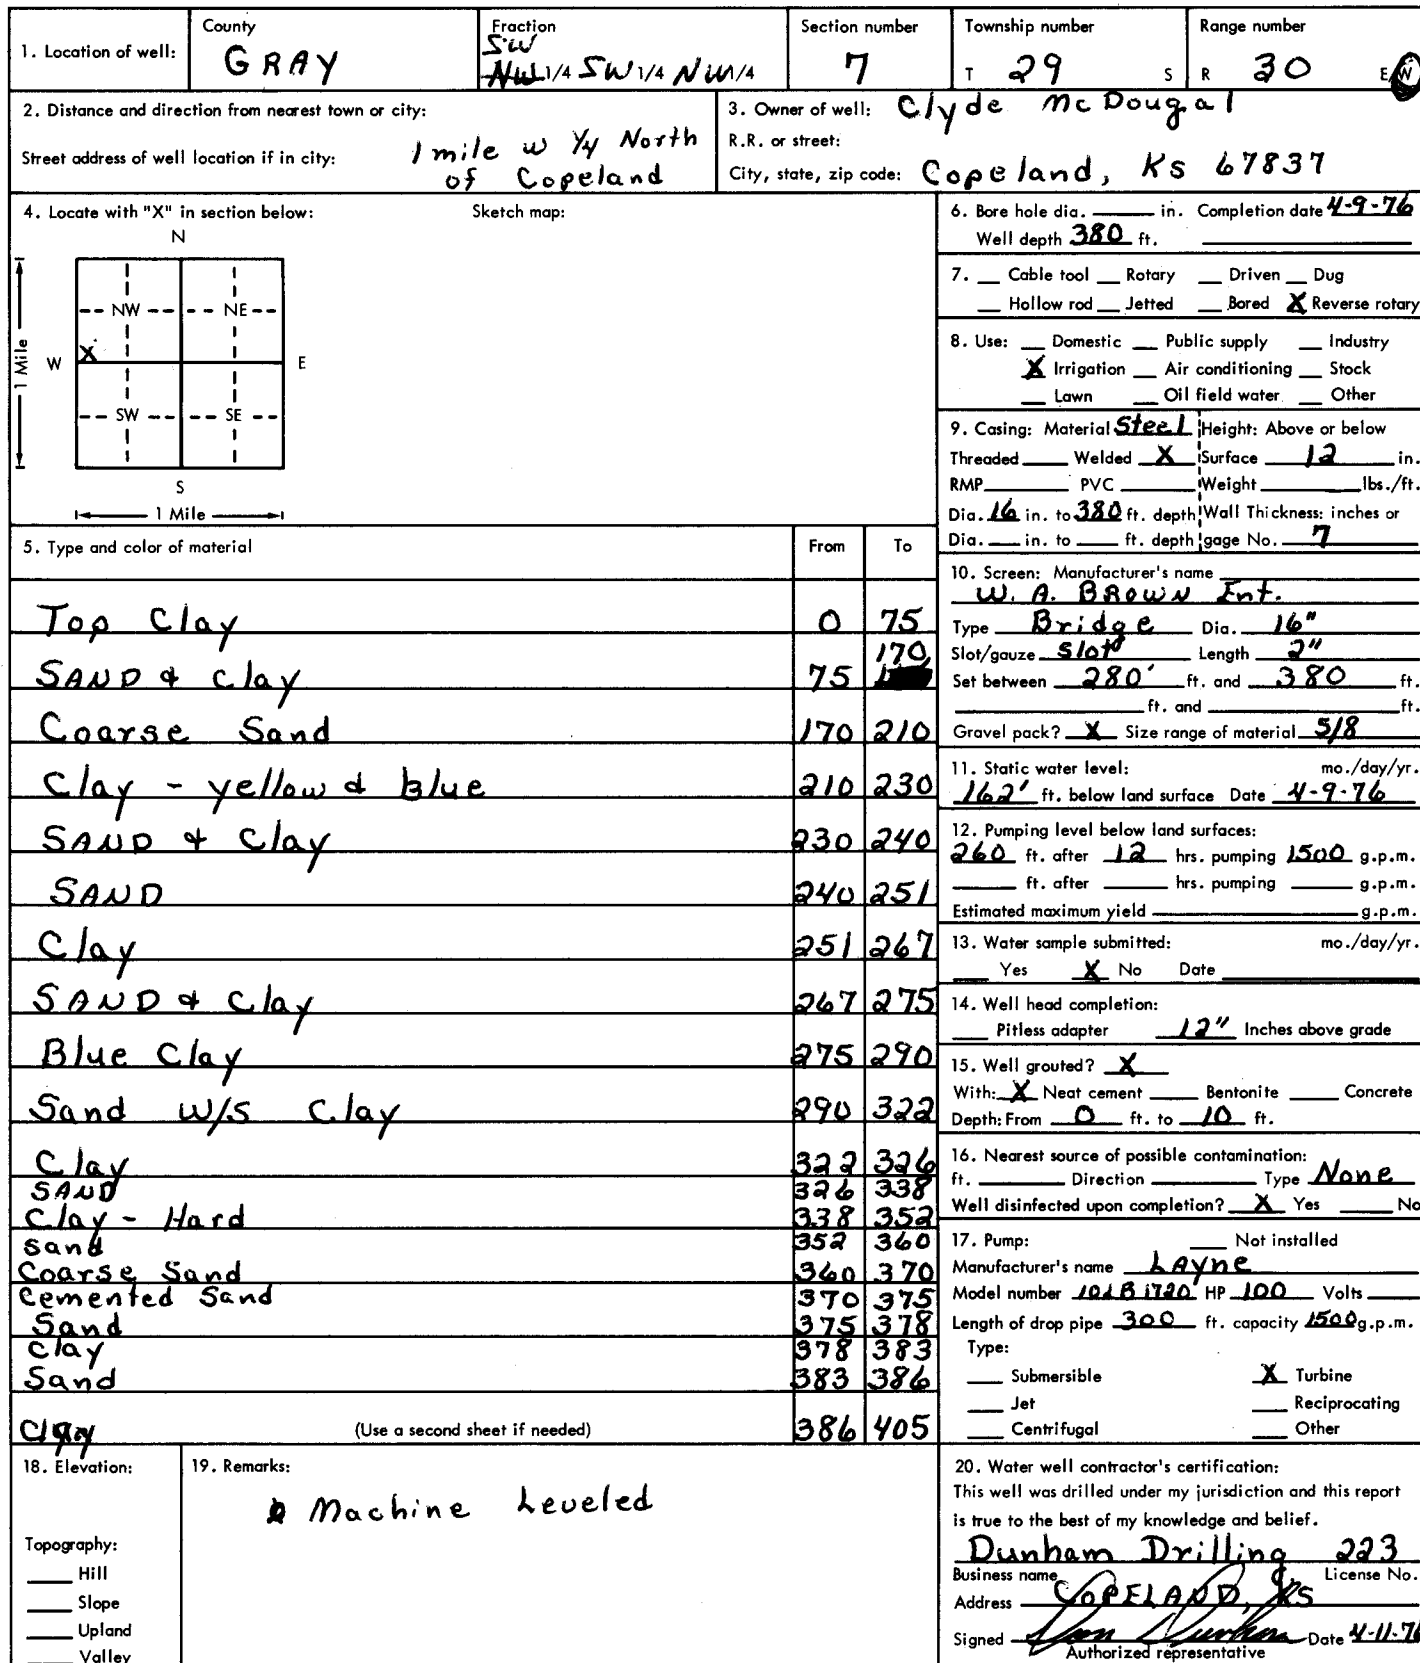 1. Location of well:
County
GRAY
Fraction
SW
NW 1/4 SW 1/4 NW 1/4
Section number
7
Township number
T 29 S
Range number
R 30 E/W
2. Distance and direction from nearest town or city:
Street address of well location if in city:
1 mile w 1/4 North
of Copeland
3. Owner of well: Clyde McDougal
R.R. or street:
City, state, zip code: Copeland, Ks 67837
4. Locate with "X" in section below:
Sketch map:
N
NW NE
1 Mile W X E
SW SE
S
1 Mile
5. Type and color of material From To
Top Clay 0 75
170
SAND & Clay 75
Coarse Sand 170 210
Clay - yellow & blue 210 230
SAND & Clay 230 240
SAND 240 251
Clay 251 267
SAND & Clay 267 275
Blue Clay 275 290
Sand W/S Clay 290 322
Clay 322 326
SAND 326 338
Clay - Hard 338 352
Sand 352 360
Coarse Sand 360 370
Cemented Sand 370 375
Sand 375 378
Clay 378 383
Sand 383 386
Clay (Use a second sheet if needed) 386 405
6. Bore hole dia. ____ in. Completion date 4-9-76
Well depth 380 ft.
7. __ Cable tool __ Rotary __ Driven __ Dug
__ Hollow rod __ Jetted __ Bored X Reverse rotary
8. Use: __ Domestic __ Public supply __ Industry
X Irrigation __ Air conditioning __ Stock
__ Lawn __ Oil field water __ Other
9. Casing: Material Steel Height: Above or below
Threaded ____ Welded X Surface 12 in.
RMP ____ PVC ____ Weight ____ lbs./ft.
Dia. 16 in. to 380 ft. depth Wall Thickness: inches or
Dia. __ in. to __ ft. depth gage No. 7
10. Screen: Manufacturer's name
W. A. BROWN Ent.
Type Bridge Dia. 16"
Slot/gauze Slot Length 2"
Set between 280' ft. and 380 ft.
____ ft. and ____ ft.
Gravel pack? X Size range of material 5/8
11. Static water level: mo./day/yr.
162' ft. below land surface Date 4-9-76
12. Pumping level below land surfaces:
260 ft. after 12 hrs. pumping 1500 g.p.m.
____ ft. after ____ hrs. pumping ____ g.p.m.
Estimated maximum yield ____ g.p.m.
13. Water sample submitted: mo./day/yr.
__ Yes X No Date ____
14. Well head completion:
__ Pitless adapter 12" Inches above grade
15. Well grouted? X
With: X Neat cement ____ Bentonite ____ Concrete
Depth: From 0 ft. to 10 ft.
16. Nearest source of possible contamination:
ft. ____ Direction ____ Type None
Well disinfected upon completion? X Yes ____ No
17. Pump: ____ Not installed
Manufacturer's name LAYNE
Model number HP 100 Volts ____
Length of drop pipe 300 ft. capacity 1500 g.p.m.
Type:
__ Submersible X Turbine
__ Jet __ Reciprocating
__ Centrifugal __ Other
18. Elevation:
Topography:
__ Hill
__ Slope
__ Upland
__ Valley
19. Remarks:
Machine Leveled
20. Water well contractor's certification:
This well was drilled under my jurisdiction and this report
is true to the best of my knowledge and belief.
Dunham Drilling 223
Business name License No.
Address COPELAND, KS
Signed Don Dunham Date 4-11-76
Authorized representative